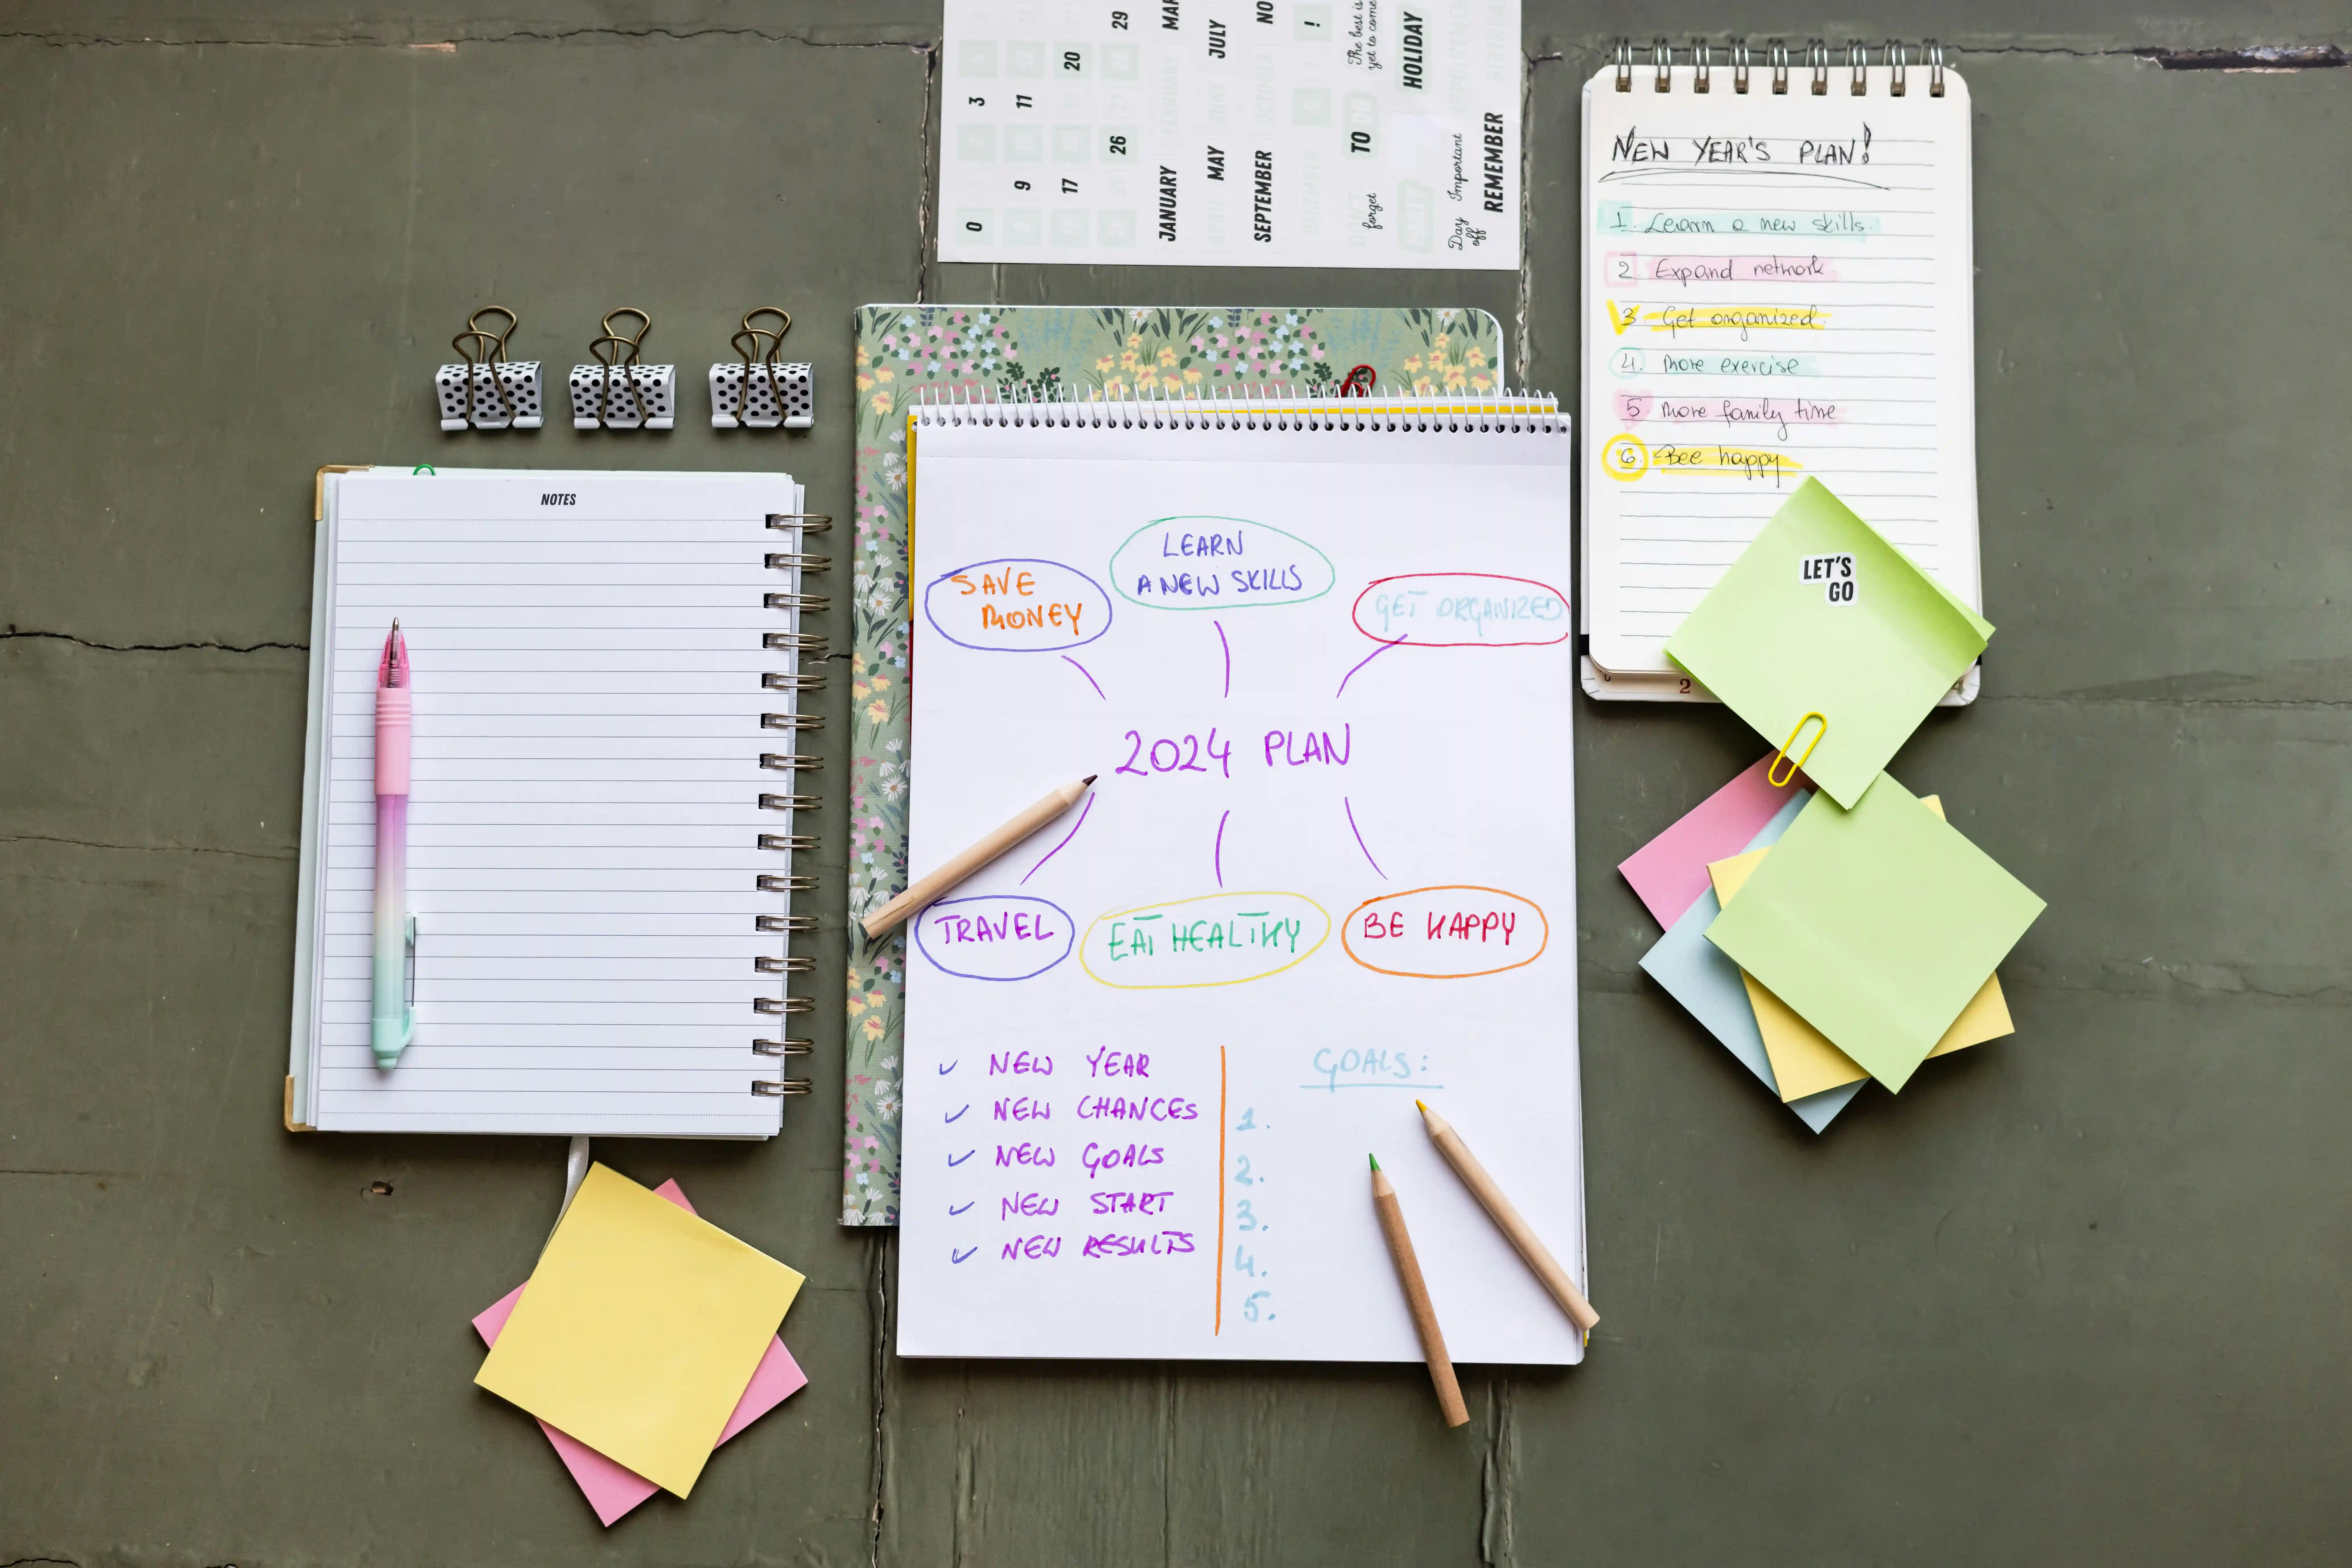 29
MAR
JULY
NO
!
The best is
yet to come
HOLIDAY
20
3
11
TO
26
JANUARY
MAY
SEPTEMBER
9
17
0
forget
Important
Day
off
REMEMBER
NOTES
SAVE
MONEY
LEARN
A NEW SKILLS
GET ORGANIZED
2024 PLAN
TRAVEL
EAT HEALTHY
BE HAPPY
NEW YEAR
NEW CHANCES
NEW GOALS
NEW START
NEW RESULTS
GOALS:
1.
2.
3.
4.
5.
NEW YEAR'S PLAN!
1. Learn a new skills.
2. Expand network.
3. Get organized.
4. More exercise
5. More family time
6. Bee happy
LET'S
GO
2